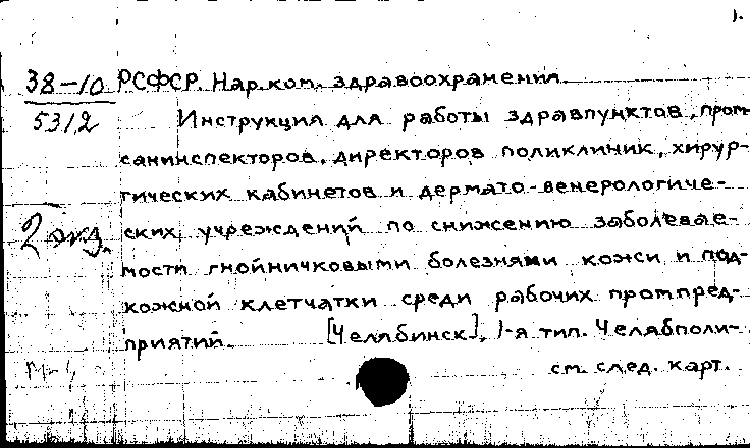 1.
38-10 РСФСР. Нар.ком. здравоохранения.
5312 Инструкция для работы здравпунктов, пром-
санинспекторов, директоров поликлиник, хирур-
гических кабинетов и дермато-венерологиче-
2 экз. ских учреждений по снижению заболевае-
мости гнойничковыми болезнями кожи и под-
кожной клетчатки среди рабочих промпред-
приятий. [Челябинск], 1-я тип. Челябполи-
см. след. карт.